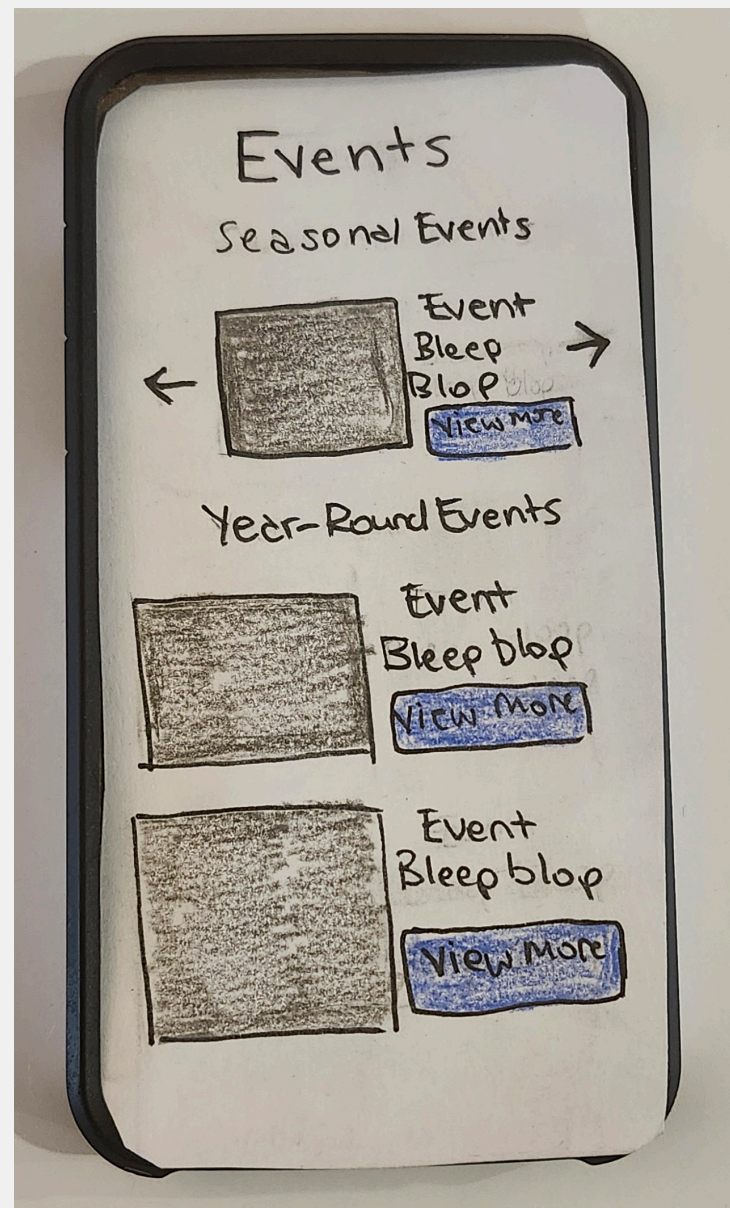 Events
Seasonal Events
Event
Bleep
Blop
View More
Year-Round Events
Event
Bleep blop
View More
Event
Bleep blop
View More